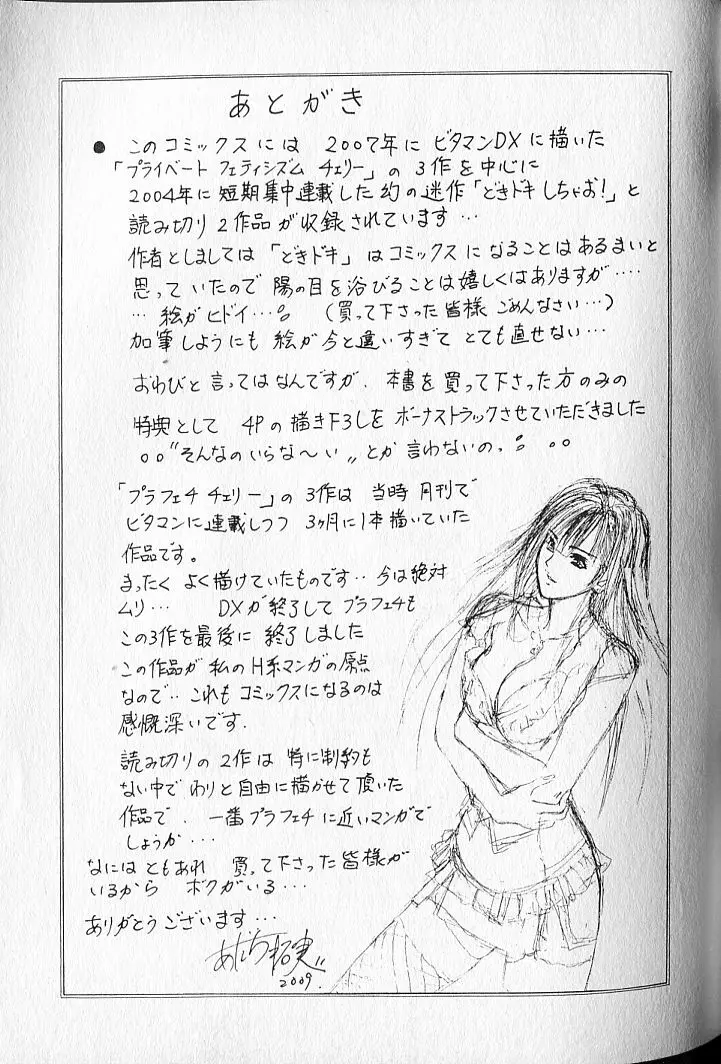 あとがき
● このコミックスには 2007年に ビタマンDXに描いた
「プライベート フェティシズム チェリー」の 3作を中心に
2004年に短期集中連載した 幻の迷作「どきドキしちゃお!」と
読み切り 2作品が収録されています…
作者としましては「どきドキ」はコミックスになることはあるまいと
思っていたので 陽の目を浴びることは嬉しくはありますが‥‥
… 絵がヒドイ…。 (買って下さった皆様 ごめんなさい…)
加筆しようにも 絵が今と違いすぎて とても直せない…
おわびと言ってはなんですが、本書を買って下さった方のみの
特典として 4Pの描き下ろしをボーナストラックさせていただきました
。。"そんなのいらな〜い〃とか 言わないの。
「プラフェチ チェリー」の 3作は 当時 月刊で
ビタマンに連載しつつ 3ヶ月に1本描いていた
作品です。
まったく よく描けていたものです‥今は絶対
ムリ… DXが終了して プラフェチも
この3作を最後に 終了しました
この作品が 私のH系マンガの原点
なので‥これもコミックスになるのは
感慨深いです.
読み切りの 2作は 特に制約も
ない中で わりと自由に描かせて頂いた
作品で、一番プラフェチに近いマンガで
しょうか…
なにはともあれ 買って下さった皆様が
いるから ボクがいる…
ありがとうございます…
2009.